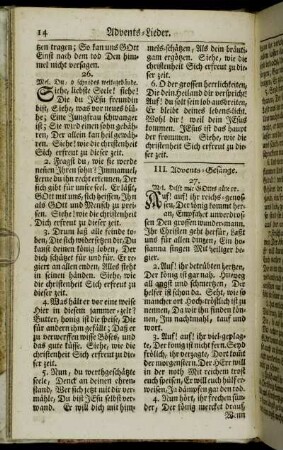 14 Advents-Lieder.
tzen tragen; So kan uns GOtt
Einst nach dem tod Den him-
mel nicht versagen.
26.
Siehe, liebste Seele! siehe!
Die du JEsu freundin
bist, Siehe, was vor neues blü-
he; Eine Jungfrau schwanger
ist; Sie wird einen sohn gebäh-
ren, Der allein kan heil gewäh-
ren. Siehe, wie die christenheit
Sich erfreut zu dieser zeit.
2. Fragst du, wie sie werde
nennen Ihren sohn? Immanuel,
Lerne du ihn recht erkennen, Der
sich gibt für unsre seel. Er läßt,
GOtt mit uns, sich heissen, Ihn
als GOtt und Mensch zu prei-
sen. Siehe, wie die christenheit
Sich erfreut zu dieser zeit.
3. Drum laß alle feinde to-
ben, Die sich widersetzen dir. Du
kanst deinen König loben, Der
dich zu schützen ist allhier. Er re-
giert an allen enden, Alles steht
in seinen händen. Siehe, wie
die christenheit Sich erfreut zu
dieser zeit.
4. Was hält er vor eine weise
Hier in diesem jammer-zelt?
Butter, honig ist die speise, Die
für andern ihm gefällt; Daß er
zu verwerffen wisse Böses, und
das gute küsse. Siehe, wie die
christenheit Sich erfreut zu die-
ser zeit.
5. Nun, du werthgeschätzte
seele, Denck an deinen ehren-
stand, Wer sich jetzt mit dir ver-
mähle, Du bist JEsu selbst ver-
wandt. Er will dich mit him-
mels-schätzen, Als dein bräuti-
gam ergötzen. Siehe, wie die
christenheit Sich erfreut zu die-
ser zeit.
6. O der grossen herrlichkeiten,
Die dein Heiland dir versprach
Auf! du solt sein lob ausbreiten,
Er bleibt deines lebens-licht.
Wohl dir! weil dein JEsus
kommen. JEsus ist das haupt
der frommen. Siehe, wie die
christenheit Sich erfreut zu die-
ser zeit.
III. Advents-Gesänge.
27.
Mel. Hilff mir GOttes güte rc.
Auf! auf! ihr reichs-genos-
sen, Der könig kommt her-
an, Empfahet unverdros-
sen Den grossen wundermann.
Ihr Christen geht herfür, Laßt
uns für allen dingen, Ein ho-
sianna singen Mit heiliger be-
gier.
2. Auf! ihr betrübten hertzen,
Der könig ist gar nah, Hinweg
all angst und schmertzen, Der
helfer ist schon da. Seht, wie
so mancher ort Hochtröstlich ist zu
nennen, Da wir ihn finden kön-
nen, Im nachtmahl, tauf und
wort.
3. Auf! auf! ihr viel-geplag-
te, Der könig ist nicht fern, Seyd
frölich, ihr verzagte, Dort komt
der morgenstern. Der HErr will
in der noth Mit reichem trost
euch speisen, Er will euch hülf er-
weisen, Ja dämpfen gar den tod.
4. Nun hört, ihr frechen sün-
der, Der könig mercket drauf,
Wenn